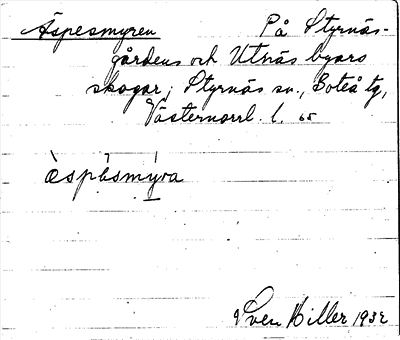 Äspesmyren På Styrnäs-
gårdens och Utnäs byars
skogar; Styrnäs sn., Boteå tg,
Västernorrl. l. 65
æ̀spèsmýra
Sven Hiller 1932